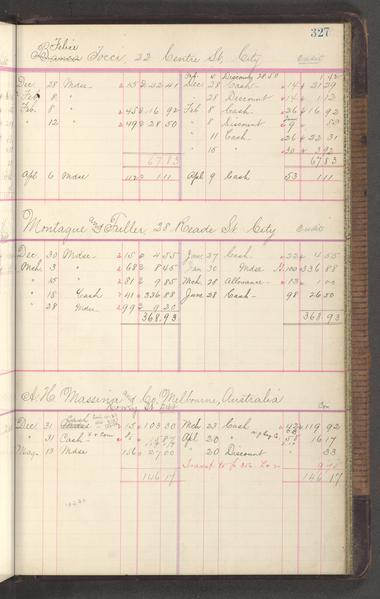 327
Felice
Tocci, 22 Centre St, City
Credit
Feb. 4 Discount 28.50 1.42
Dec 28 Mdse 15 22 41 Dec 28 Cash 14 21 29
Feb 8 " " 28 Discount 14 1 12
Feb. 8 " 45 16 92 Feb 8 Cash 26 16 92
" 12 " 49 28 50 " 8 Discount
" 11 Cash 26 22 31
" 15 " 30 3 92
67.83 67 83
Apl 6 Mdse 112 1 11 Apl 9 Cash 53 1 11
Montague and Fuller 28 Reade St City
Credit
Dec 30 Mdse 15 4 55 Jan. 27 Cash 22 4 55
Mch 3 " 68 8 45 Jan 30 Mdse 100 336 88
" 15 " 81 9 85 Mch 28 Allowance 13 1 00
" 18 Cash 41 336 88 June 28 Cash 98 26 50
" 28 Mdse 99 9 20
368.93 368 93
A. H. Massina and Co Melbourne, Australia
Dec 31 15 103 30 Mch 23 Cash 43 119 92
" 31 Cash Apl 20 " 58 16 17
May 13 Mdse 156 27 00 " 20 Discount " 33
146 17 146 17